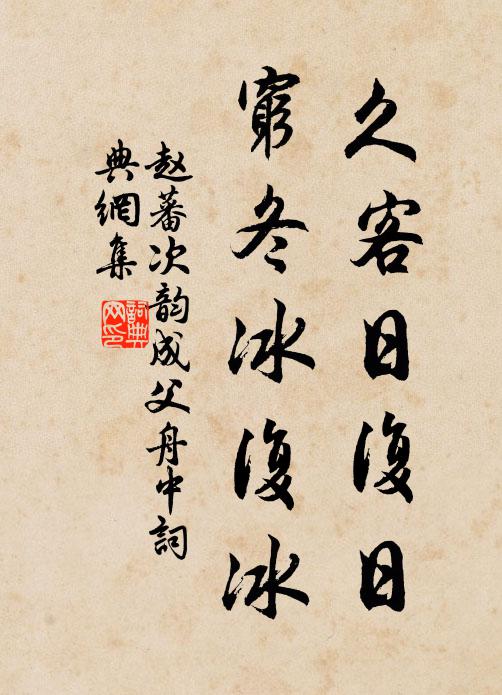 久客日復日
窮冬冰復冰
赵蕃次韵成父舟中詞
典網集
詞典
网印